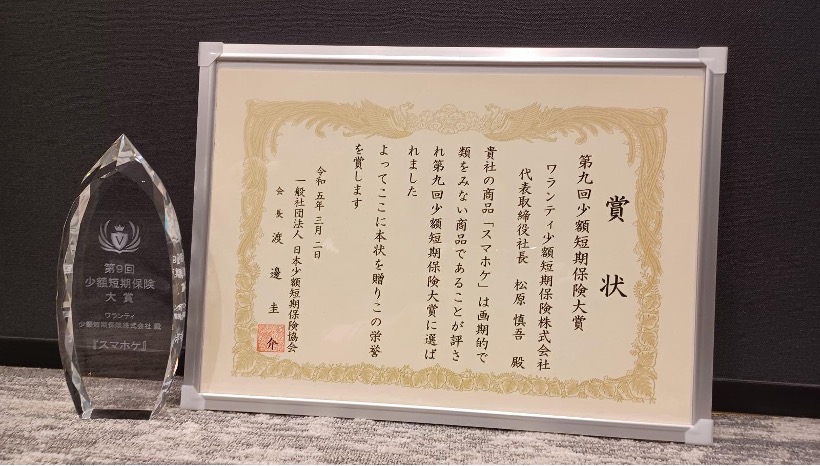 賞状
第九回少額短期保険大賞
ワランティ少額短期保険株式会社
代表取締役社長 松原 慎吾 殿
貴社の商品「スマホケ」は画期的で
類をみない商品であることが評さ
れ第九回少額短期保険大賞に選ば
れました
よってここに本状を贈りこの栄誉
を賞します
令和五年三月二日
一般社団法人 日本少額短期保険協会
会長 渡邊 圭介
V
第9回
少額短期保険
大賞
ワランティ
少額短期保険株式会社 殿
『スマホケ』